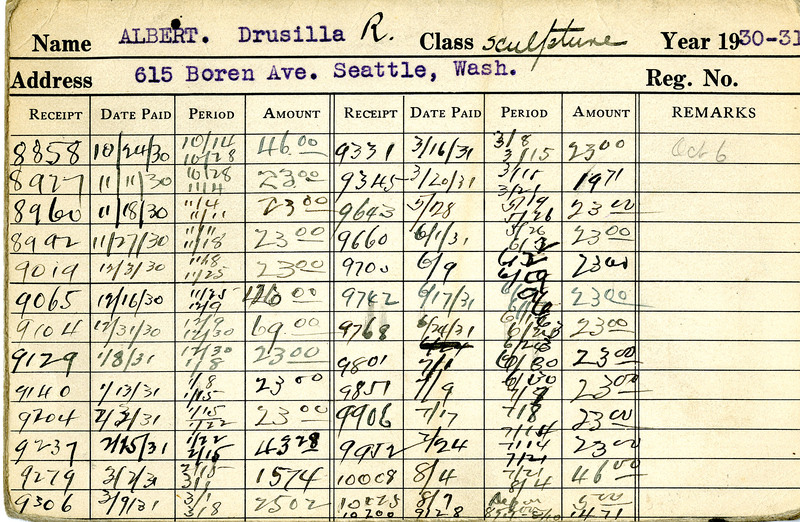 Name ALBERT. Drusilla R. Class Sculpture Year 1930-31
Address 615 Boren Ave. Seattle, Wash. Reg. No.
RECEIPT DATE PAID PERIOD AMOUNT RECEIPT DATE PAID PERIOD AMOUNT REMARKS
8858 10/24/30 10/14 10/28 46.00 9331 3/16/31 3/8 3/15 23 00 Oct 6
8927 11/11/30 10/28 11/4 23.00 9345 3/20/31 3/15 1971
8960 11/18/30 11/4 11/11 23 00 9643 5/28 5/19 5/26 23 00
8992 11/27/30 11/11 11/18 23 00 9660 6/1/31 5/26 6/2 23 00
9019 12/3/30 11/18 11/25 23 00 9700 6/9 6/2 6/9 23 00
9065 12/16/30 11/25 12/9 46 00 9742 6/17/31 23 00
9104 12/31/30 12/9 12/30 69 00 9768 6/24/31 23 00
9129 1/8/31 12/30 1/8 23 00 9801 7/1 6/30 23 00
9140 1/13/31 1/8 1/15 23 00 9851 7/9 6/30 7/7 23 00
9204 2/2/31 1/15 1/22 23 00 9906 7/17 7/8 7/14 23 00
9237 2/25/31 1/22 2/15 43 28 9952 7/24 7/14 7/21 23 00
9279 3/2/31 2/15 3/1 1574 10008 8/4 7/21 8/4 46 00
9306 3/9/31 3/1 3/8 2502 8/7 5 00
10200 9/28 1471